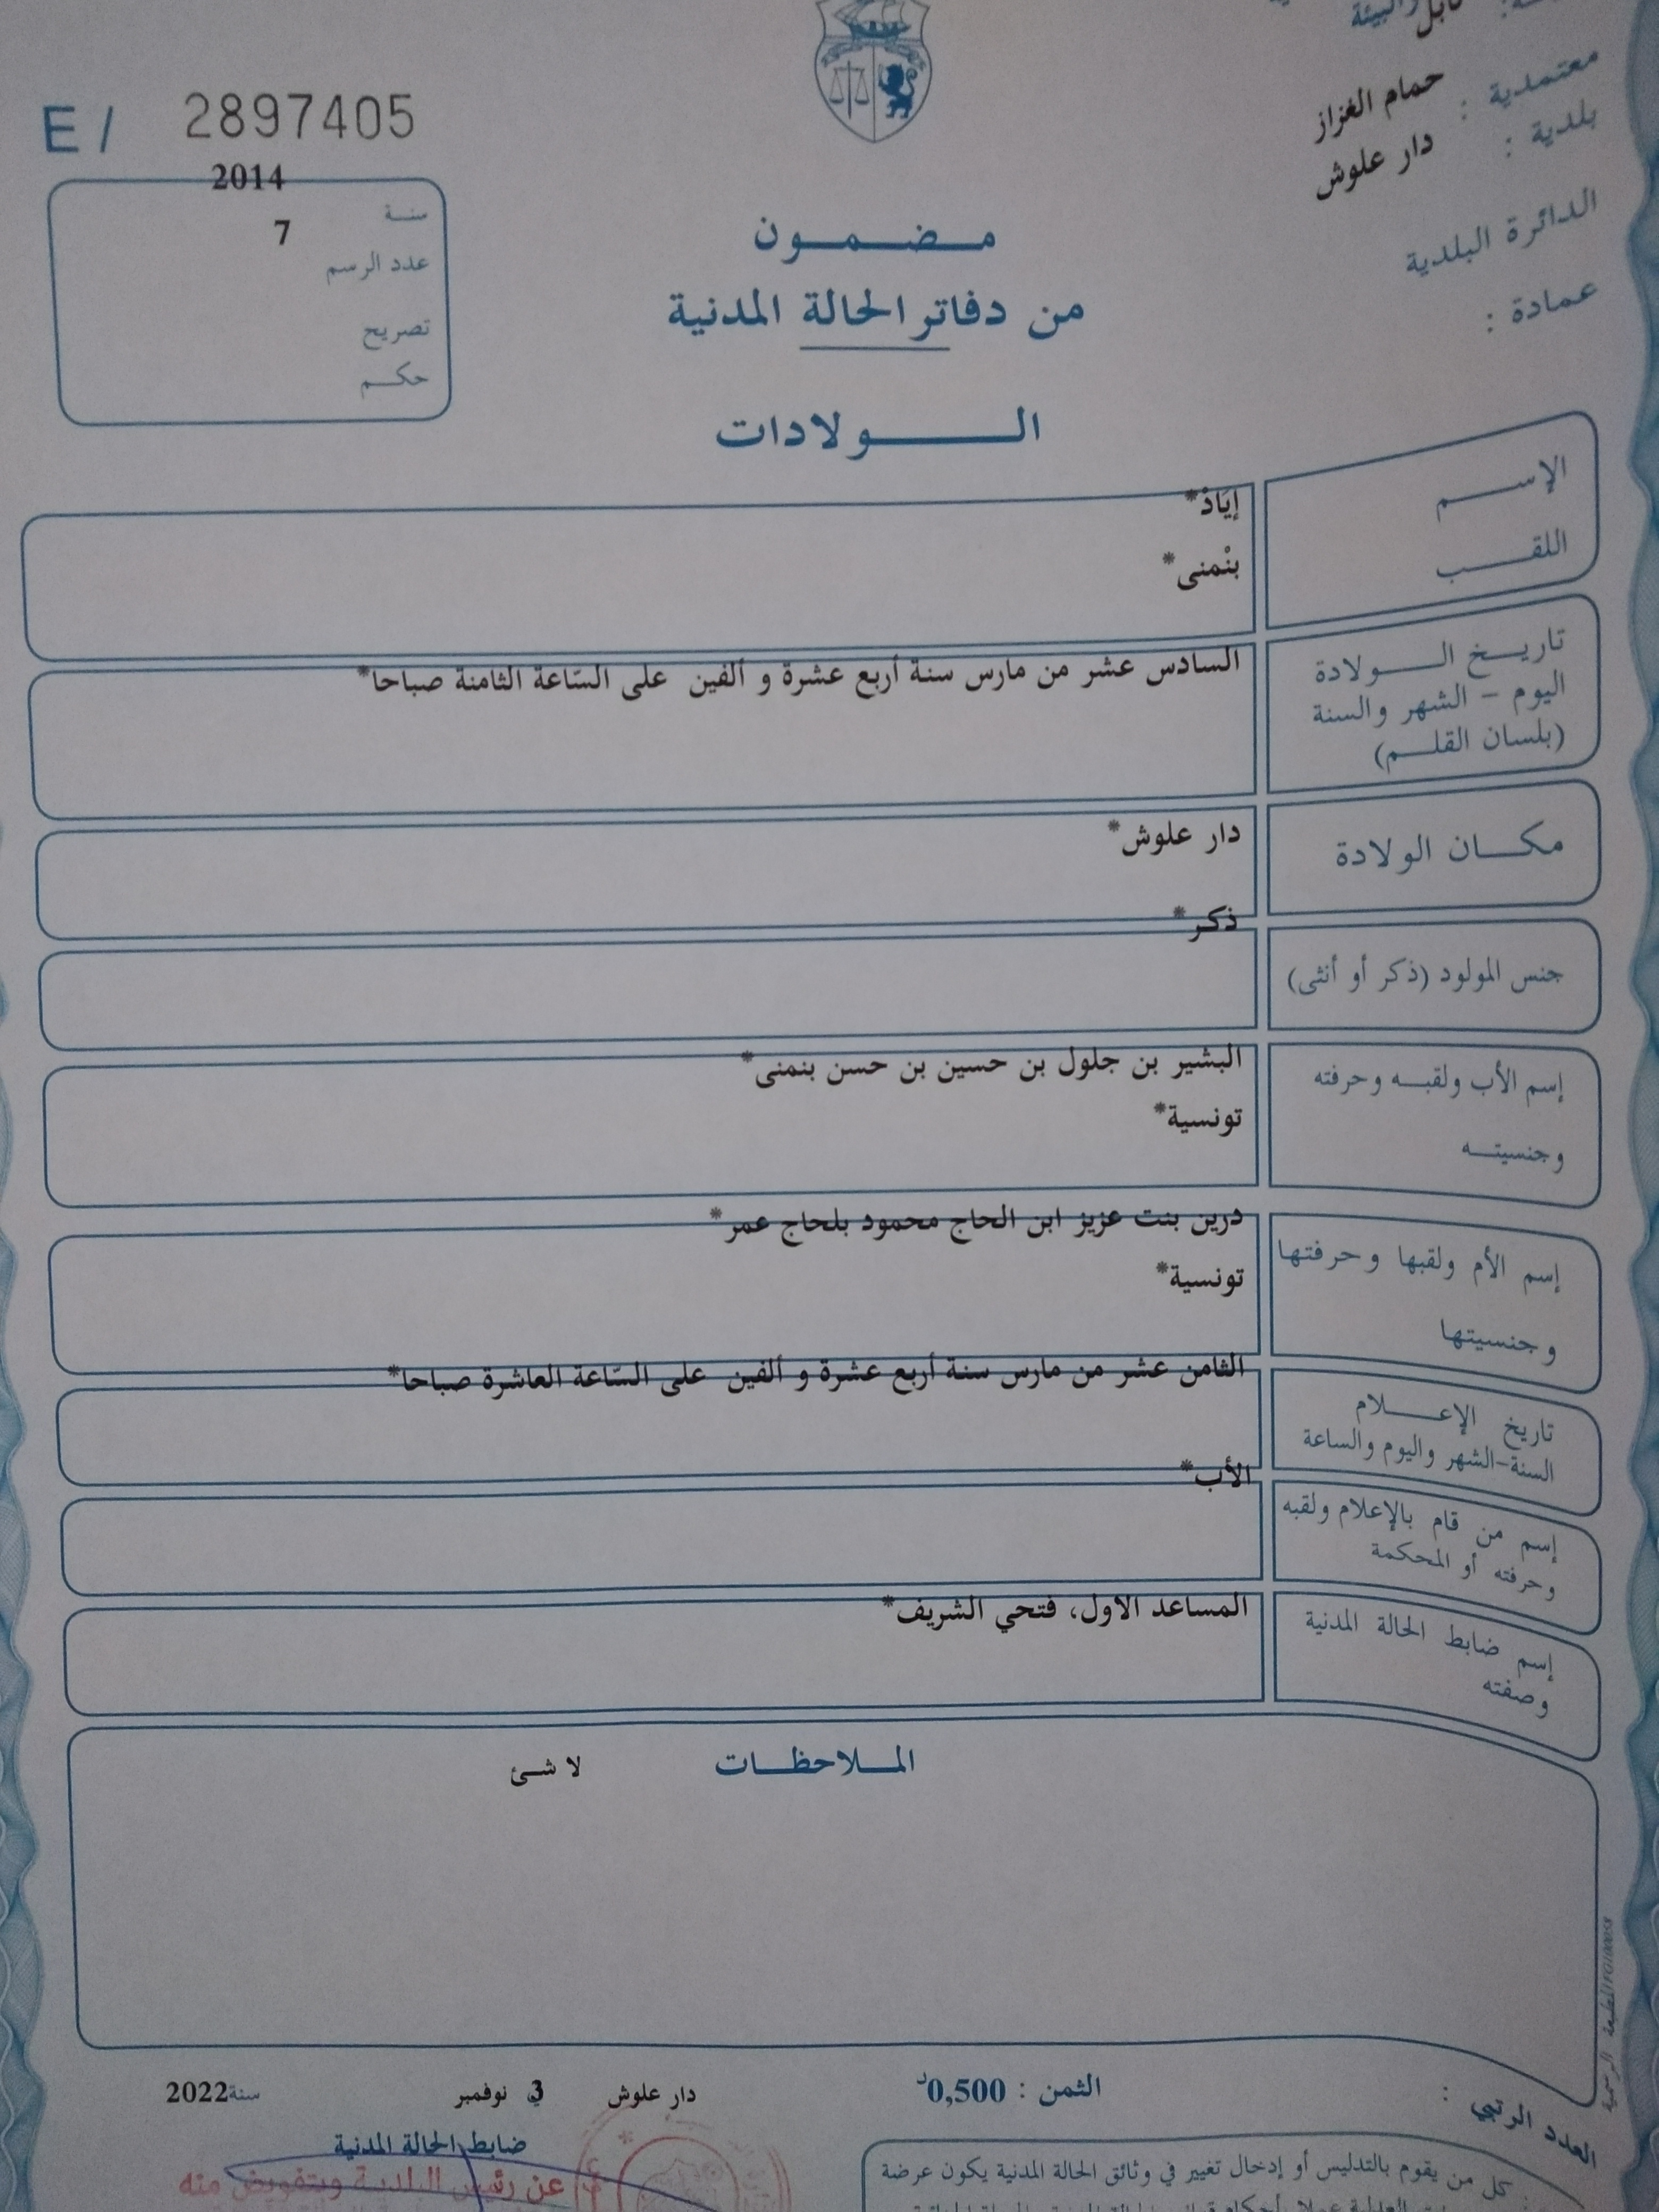 والبيئة
نابل
معتمدية : حمام الغزاز
بلدية : دار علوش
الدائرة البلدية
عمادة :
E / 2897405
2014
سنة
7
عدد الرسم
تصريح
حكم
مضمون
من دفاتر الحالة المدنية
الولادات
الإسم
إيَاذْ*
اللقب
بنْمنى*
تاريخ الولادة
اليوم - الشهر والسنة
(بلسان القلم)
السادس عشر من مارس سنة أربع عشرة و ألفين على السّاعة الثامنة صباحا*
مكان الولادة
دار علوش*
جنس المولود (ذكر أو أنثى)
ذكر*
إسم الأب ولقبه وحرفته
وجنسيته
البشير بن جلول بن حسين بن حسن بنمنى*
تونسية*
إسم الأم ولقبها وحرفتها
وجنسيتها
درين بنت عزيز ابن الحاج محمود بلحاج عمر*
تونسية*
تاريخ الإعلام
السنة-الشهر واليوم والساعة
الثامن عشر من مارس سنة أربع عشرة و ألفين على السّاعة العاشرة صباحا*
إسم من قام بالإعلام ولقبه
وحرفته أو المحكمة
الأب*
إسم ضابط الحالة المدنية
وصفته
المساعد الاول، فتحي الشريف*
الملاحظات لا شئ
العدد الرتبي :
الثمن : 0,500د
دار علوش في 3 نوفمبر سنة 2022
ضابط الحالة المدنية
عن رئيس البلدية وبتفويض منه
كل من يقوم بالتدليس أو إدخال تغيير في وثائق الحالة المدنية يكون عرضة
المطبعة الرسمية